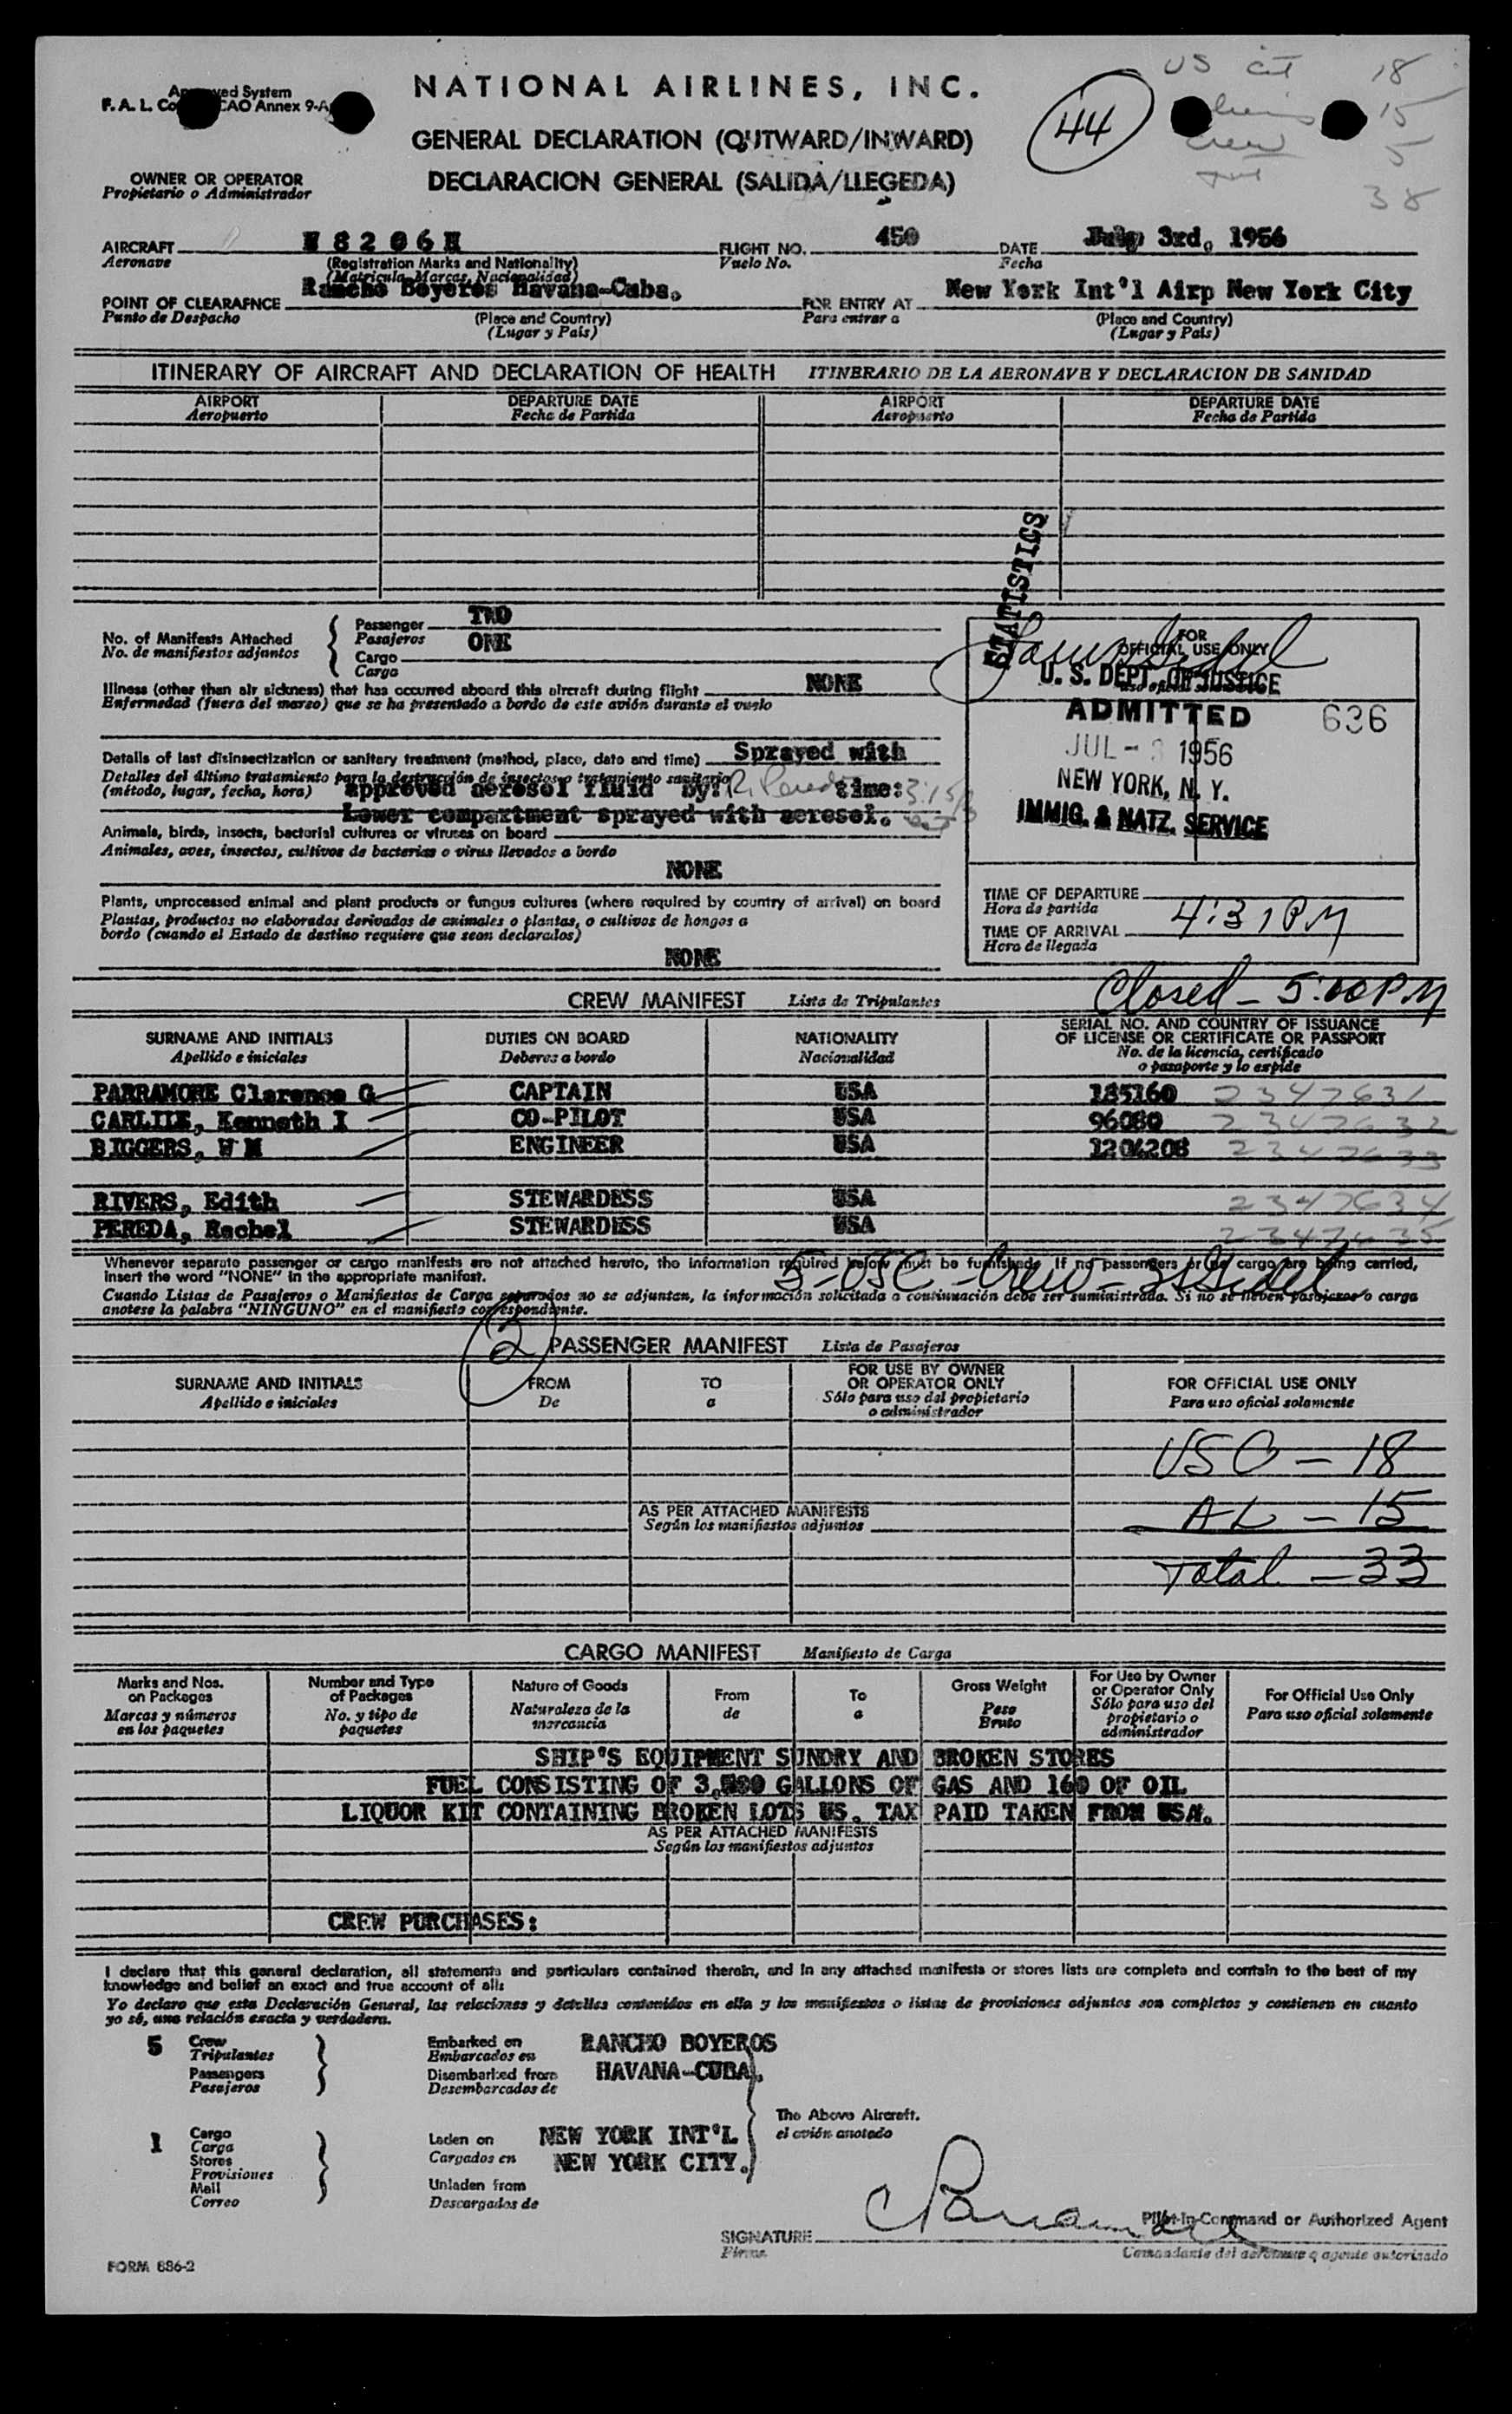 Approved System
F. A. L. ICAO Annex 9-A
NATIONAL AIRLINES, INC.
GENERAL DECLARATION (OUTWARD/INWARD)
DECLARACION GENERAL (SALIDA/LLEGEDA)
44
US cit 18
15
crew 5
38
OWNER OR OPERATOR
Propietario o Administrador
AIRCRAFT N 8 2 0 6 H FLIGHT NO. 450 DATE July 3rd, 1956
Aeronave (Registration Marks and Nationality) Vuelo No. Fecha
(Matricula Marcas, Nacionalidad)
POINT OF CLEARAFNCE Rancho Boyeros Havana-Cuba. FOR ENTRY AT New York Int'l Airp New York City
Punto de Despacho (Place and Country) Para entrar a (Place and Country)
(Lugar y País) (Lugar y País)
ITINERARY OF AIRCRAFT AND DECLARATION OF HEALTH ITINERARIO DE LA AERONAVE Y DECLARACION DE SANIDAD
AIRPORT DEPARTURE DATE AIRPORT DEPARTURE DATE
Aeropuerto Fecha de Partida Aeropuerto Fecha de Partida
STATISTICS
No. of Manifests Attached Passenger TWO
No. de manifiestos adjuntos Pasajeros ONE
Cargo
Carga
Illness (other than air sickness) that has occurred aboard this aircraft during flight NONE
Enfermedad (fuera del mareo) que se ha presentado a bordo de este avión durante el vuelo
Details of last disinsectization or sanitary treatment (method, place, date and time) Sprayed with
Detalles del último tratamiento para la destrucción de insectos o tratamiento sanitario
(método, lugar, fecha, hora) approved aerosol fluid by: R. Pereda time: 3:15
Lower compartment sprayed with aerosol.
Animals, birds, insects, bacterial cultures or viruses on board
Animales, aves, insectos, cultivos de bacterias o virus llevados a bordo
NONE
Plants, unprocessed animal and plant products or fungus cultures (where required by country of arrival) on board
Plantas, productos no elaborados derivados de animales o plantas, o cultivos de hongos a
bordo (cuando el Estado de destino requiere que sean declarados)
NONE
FOR
OFFICIAL USE ONLY
uso oficial solamente
U. S. DEPT. OF JUSTICE
ADMITTED 636
JUL - 3 1956
NEW YORK, N. Y.
IMMIG. & NATZ. SERVICE
TIME OF DEPARTURE
Hora de partida
TIME OF ARRIVAL 4:31 PM
Hora de llegada
Closed - 5:00 PM
CREW MANIFEST Lista de Tripulantes
SURNAME AND INITIALS DUTIES ON BOARD NATIONALITY SERIAL NO. AND COUNTRY OF ISSUANCE
OF LICENSE OR CERTIFICATE OR PASSPORT
Apellido e iniciales Deberes a bordo Nacionalidad No. de la licencia, certificado
o pasaporte y lo expide
PARRAMORE Clarence G CAPTAIN USA 185160 2347631
CARLILE, Kenneth I CO-PILOT USA 96080 2347632
BIGGERS, W M ENGINEER USA 1204208 2347633
RIVERS, Edith STEWARDESS USA 2347634
PEREDA, Rachel STEWARDESS USA 2347635
Whenever separate passenger or cargo manifests are not attached hereto, the information required below must be furnished. If no passengers or no cargo are being carried,
insert the word "NONE" in the appropriate manifest.
5 - USC - Crew -
Cuando Listas de Pasajeros o Manifiestos de Carga separados no se adjuntan, la información solicitada a continuación debe ser suministrada. Si no se lleven pasajeros o carga
anotese la palabra "NINGUNO" en el manifiesto correspondiente.
2 PASSENGER MANIFEST Lista de Pasajeros
SURNAME AND INITIALS FROM TO FOR USE BY OWNER
OR OPERATOR ONLY FOR OFFICIAL USE ONLY
Apellido e iniciales De a Sólo para uso del propietario
o administrador Para uso oficial solamente
USC - 18
AS PER ATTACHED MANIFESTS AL - 15
Según los manifiestos adjuntos
Total - 33
CARGO MANIFEST Manifiesto de Carga
Marks and Nos.
on Packages
Marcas y números
en los paquetes
Number and Type
of Packages
No. y tipo de
paquetes
Nature of Goods
Naturaleza de la
mercancia
From
de
To
a
Gross Weight
Peso
Bruto
For Use by Owner
or Operator Only
Sólo para uso del
propietario o
administrador
For Official Use Only
Para uso oficial solamente
SHIP'S EQUIPMENT SUNDRY AND BROKEN STORES
FUEL CONSISTING OF GALLONS OF GAS AND 160 OF OIL
LIQUOR KIT CONTAINING BROKEN LOTS US. TAX PAID TAKEN FROM USA.
AS PER ATTACHED MANIFESTS
Según los manifiestos adjuntos
CREW PURCHASES:
I declare that this general declaration, all statements and particulars contained therein, and in any attached manifests or stores lists are complete and contain to the best of my
knowledge and belief an exact and true account of all:
Yo declaro que esta Declaración General, las relaciones y detalles contenidos en ella y los manifiestos o listas de provisiones adjuntos son completos y contienen en cuanto
yo sé, una relación exacta y verdadera.
5 Crew Embarked on RANCHO BOYEROS
Tripulantes Embarcados en
Passengers Disembarked from HAVANA-CUBA,
Pasajeros Desembarcados de
The Above Aircraft.
el avión anotado
1 Cargo Laden on NEW YORK INT'L
Carga
Stores Cargados en NEW YORK CITY.
Provisiones
Mail Unladen from
Correo Descargados de
SIGNATURE C Parramore Pilot-in-Command or Authorized Agent
Firma Comandante del aeronave o agente autorizado
FORM 886-2